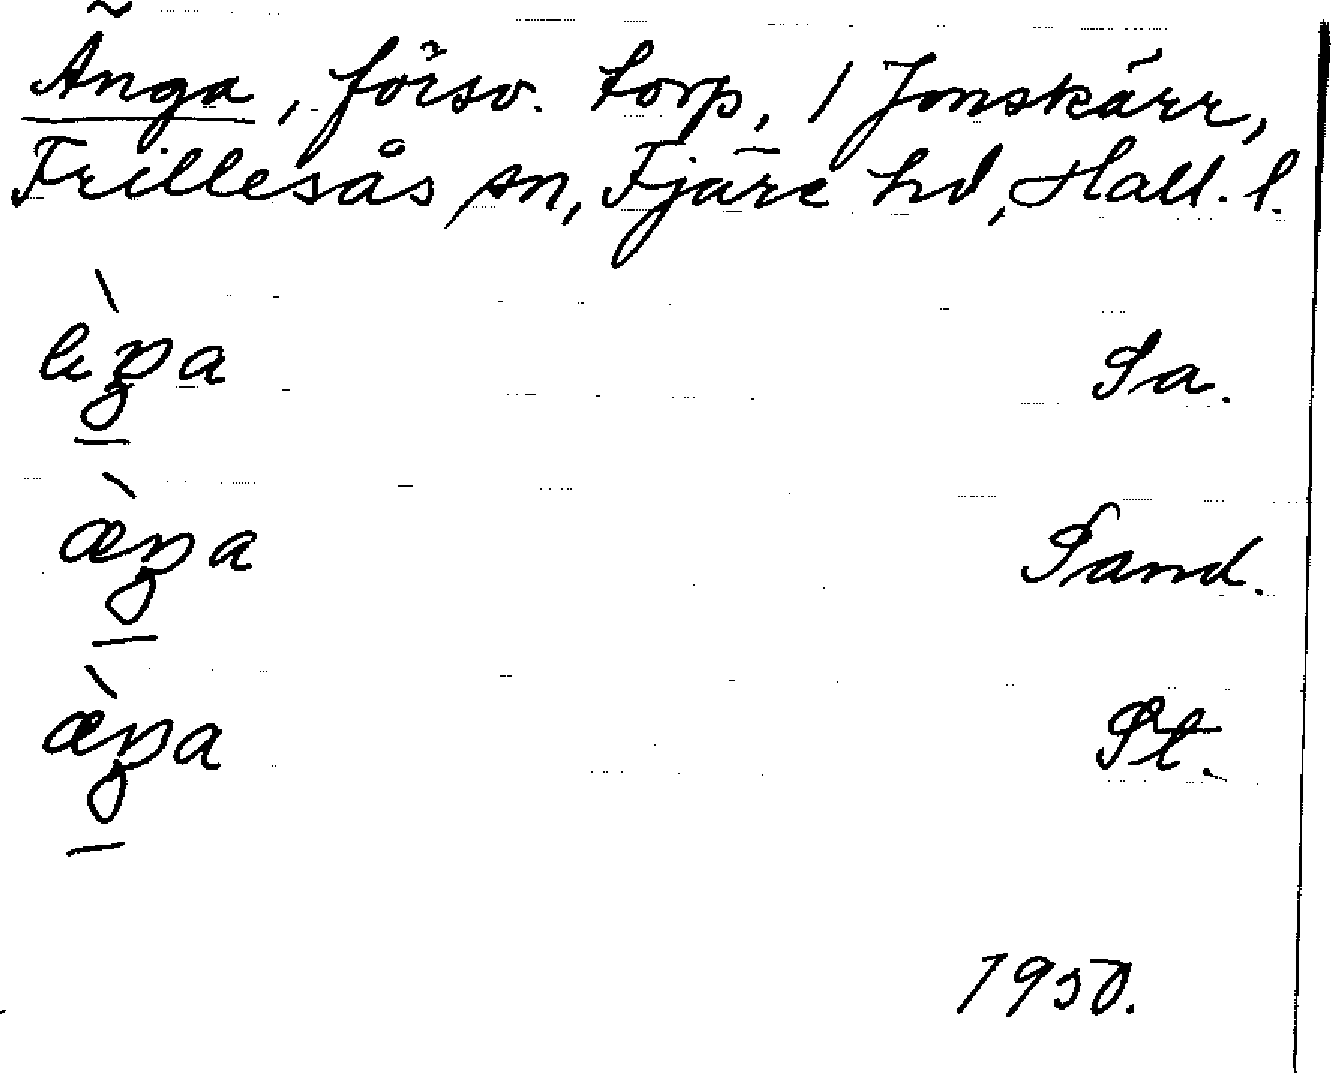 Änga, försv. torp, 1 Jonskärr,
Frillesås sn, Fjäre hd, Hall. l.
Sa.
æ̀ŋa Sand.
æ̀ŋa St.
1950.